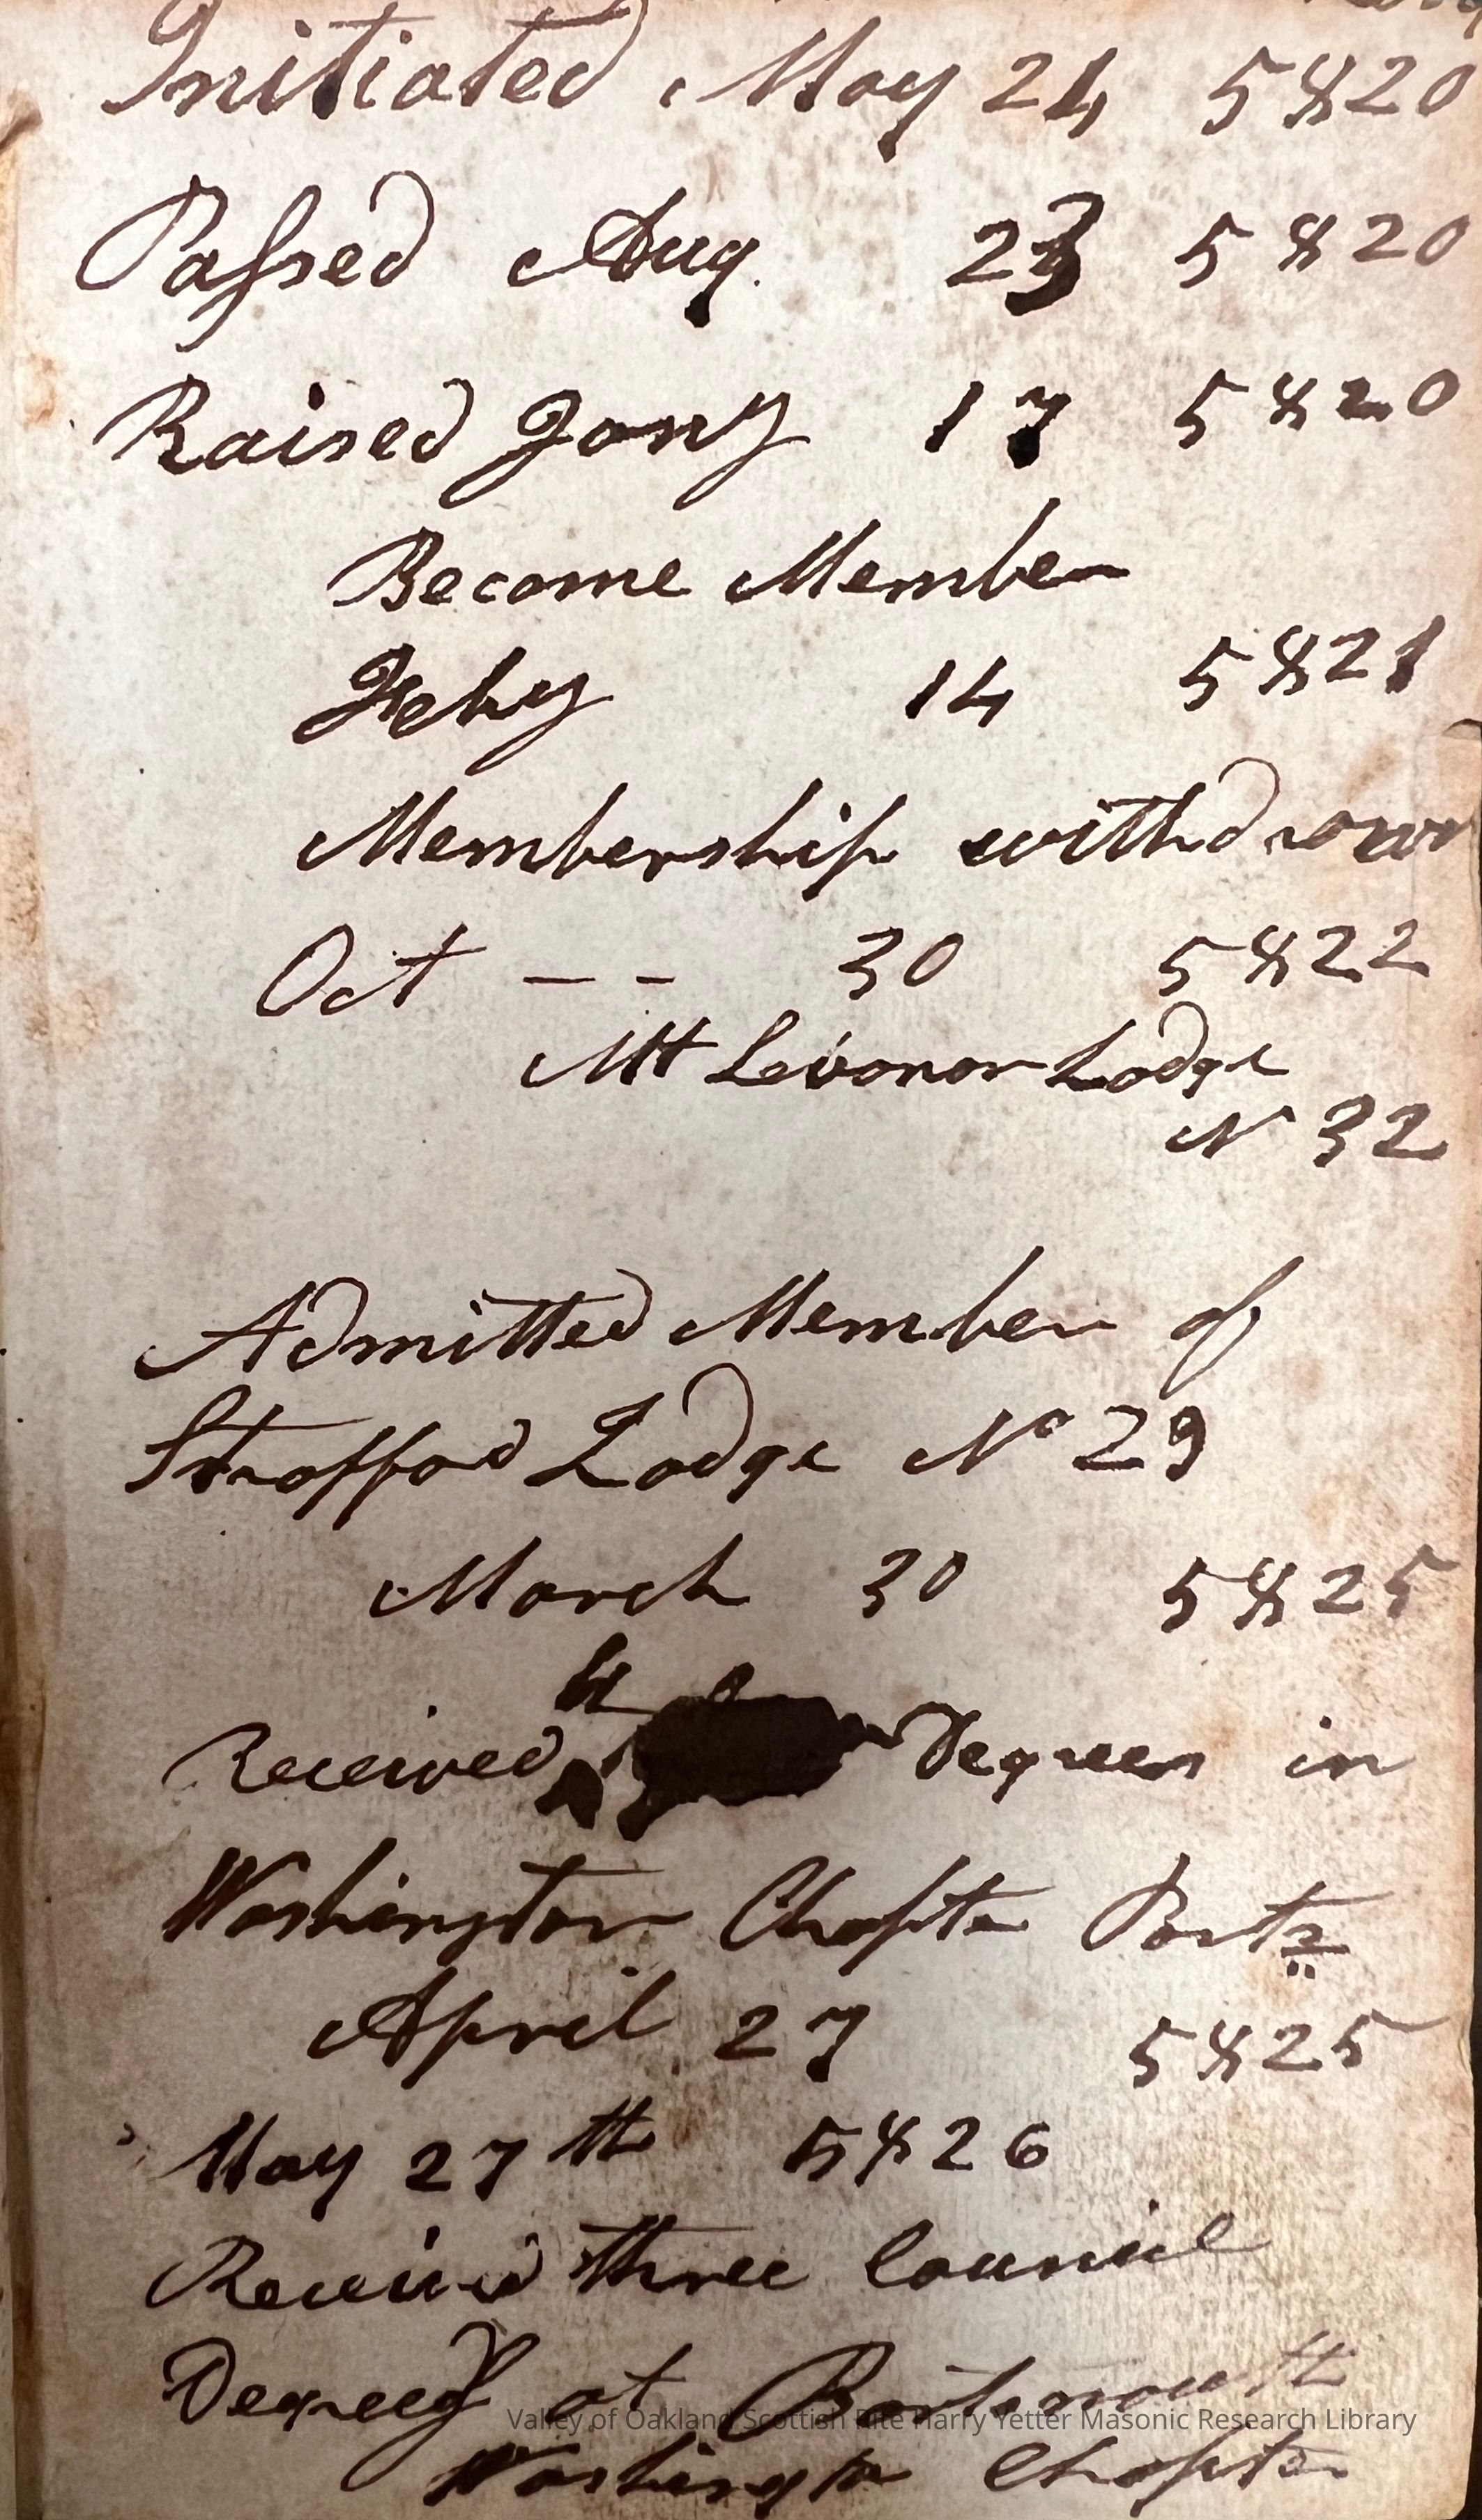 Initiated May 24 5820
Passed Aug. 23 5820
Raised Jany 17 5820
Become Member
Feby 14 5821
Membership withdrawn
Oct -- 30 5822
Mt Levonon Lodge
N 32
Admitted Member of
Strafford Lodge No 29
March 30 5825
4
Received Degrees in
Washington Chapter Ports
April 27 5825
May 27th 5826
Received three Council
Degrees at Portsmouth
Washington Chapter
Valley of Oakland Scottish Rite Harry Yetter Masonic Research Library